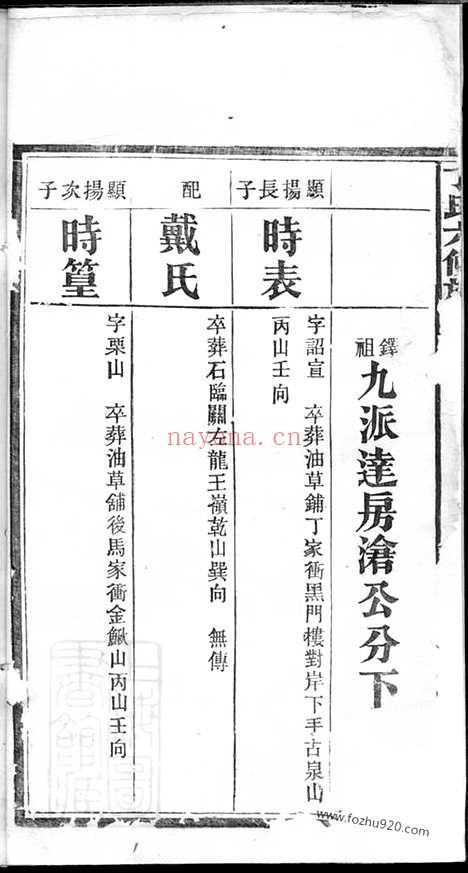 鐸祖九派達房滄公分下
顯揚長子
時表
字詔宣　卒葬油草鋪丁家衝黑門樓對岸下手古泉山
丙山壬向
配
戴氏
卒葬石臨關左龍王嶺乾山巽向　無傳
顯揚次子
時篁
字栗山　卒葬油草舖後馬家衝金鰍山丙山壬向
nayona.cn
www.fozhu920.com